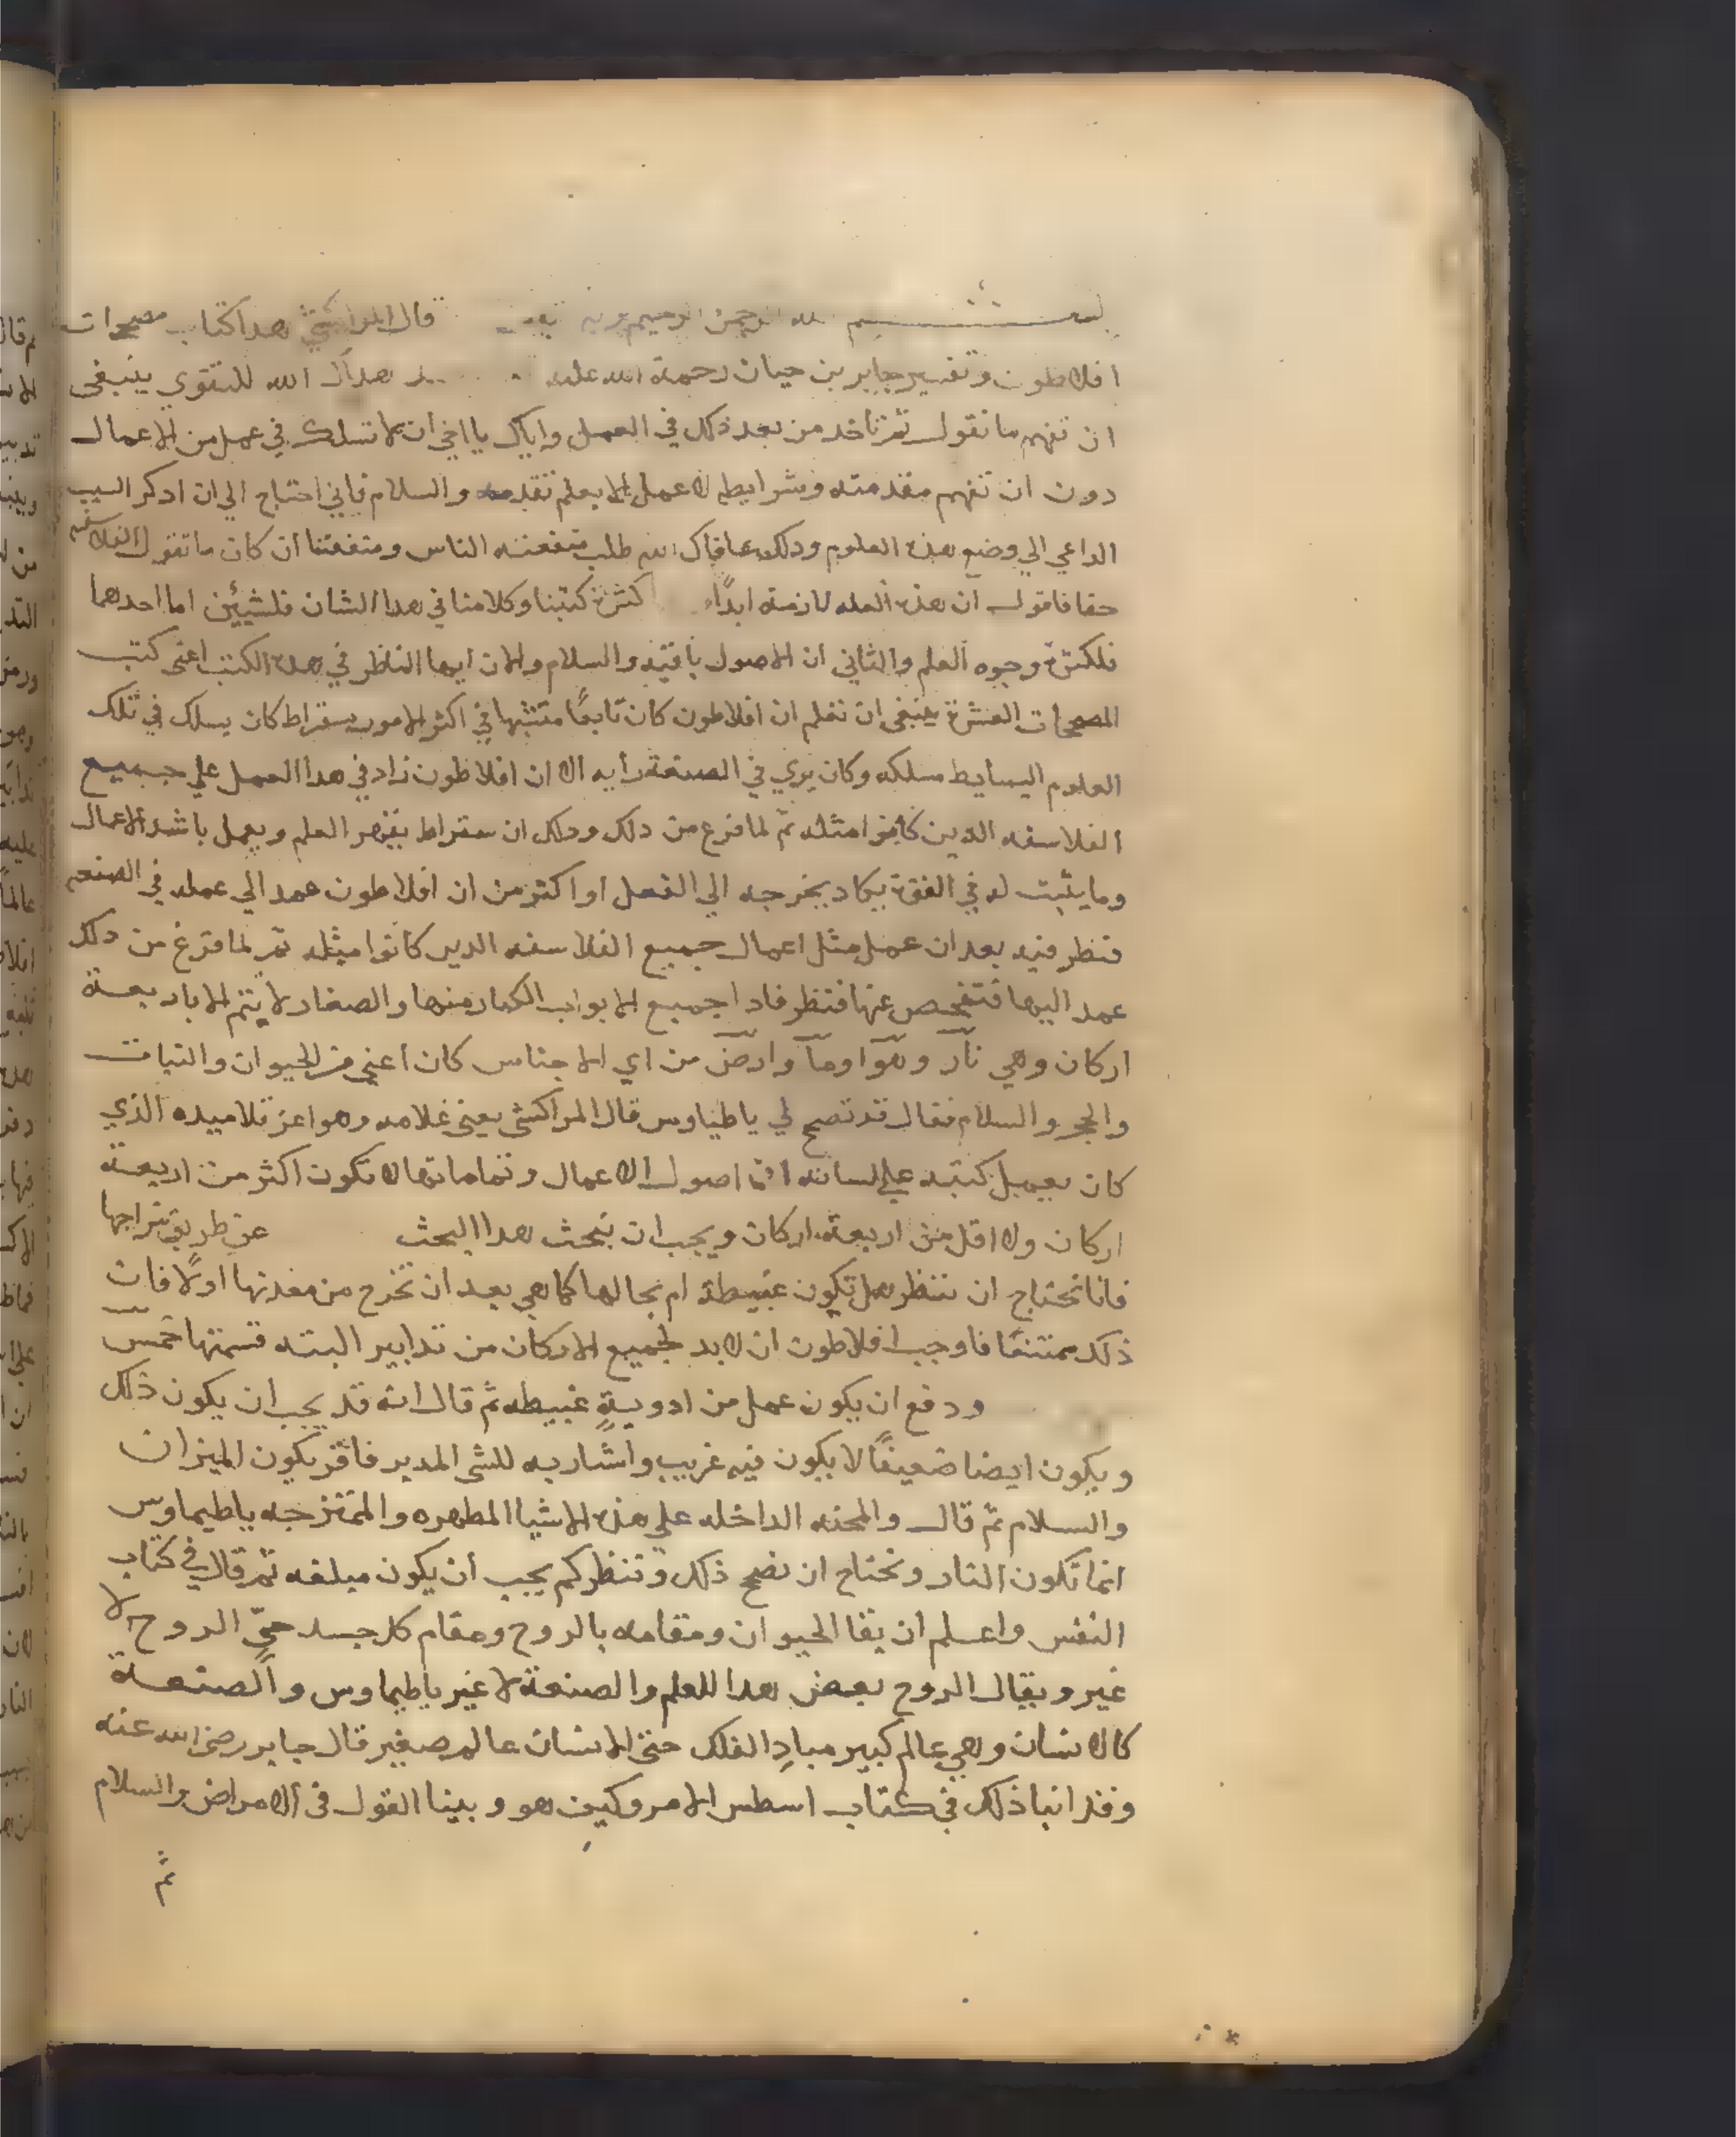 بسم الله الرحمن الرحيم وبه قال المراكشي هدا كتاب مصححات
افلاطون وتفسير جابر بن حيان رحمة الله عليه هداك الله للتقوي ينبغى
ان تفهم ما نقول ثم تاخد من بعد ذلك في العمل واياك يا اخي ان لا تسلك في عمل من الاعمال
دون ان تفهم مقدمته وشرايطه لا عمل الا بعلم تقدمه والسلام فاني احتاج الي ان ادكر السبب
الداعي الي وضع هذه العلوم ودلك عافاك الله طلب منفعته الناس ومنفعتنا ان كان ما تقول الفلاسفه
حقا فاقول ان هذه العله لازمة ابدًا كثرة كتبنا وكلامنا في هدا الشان فلشيئين اما احدهما
فلكثرة وجوه العلم والثاني ان الاصول باقيه والسلام والان ايها الناظر في هده الكتب اعنى كتب
المصححات العشرة ينبغى ان تعلم ان افلاطون كان تابعًا متشبها في اكثر الامور بسقراط كان يسلك في تلك
العلوم البسايط مسلكه وكان يري في الصنعة رأيه الا ان افلاطون زاد في هدا العمل علي جميع
الفلاسفه الدين كانوا مثله ثم لما فرغ من دلك ودلك ان سقراط العلم ويعمل باشد الاعمال
وما يثبت له في القوة يكاد يخرجه الي الفعل او اكثر من ان افلاطون عمد الي عمله في الصنعه
فنظر فيه بعد ان عمل مثل اعمال جميع الفلاسفه الدين كانوا مثله ثم لما فرغ من دلك
عمد اليها فتفحص عنها فنظر فادا جميع الابواب الكبار منها والصغار لا يتم الا باربعة
اركان وهي نار وهوا وما وارض من اي الاجناس كان اعني من الحيوان والنبات
والحجر والسلام فقال قد تصح لي ياطيماوس قال المراكشي يعنى غلامه وهو اعز تلاميده الذي
كان يعمل كتبه علي لسانه اما اصول الاعمال وتماماتها لا تكون اكثر من اربعة
اركان ولا اقل من اربعة اركان ويجب ان تبحث هدا البحث عن طريق مزاجها
فانا نحتاج ان ننظر هل تكون عبيطة ام بحالها كما هي بعد ان تخرج من معدنها اولًا فان
ذلك ممتنعًا فاوجب افلاطون ان لا بد لجميع الاركان من تدابير البته قسمتها خمس
ودفع ان يكون عمل من ادويةٍ عبيطه ثم قال انه قد يجب ان يكون ذلك
ويكون ايضا ضعيفًا لا يكون فيه غريب واشار به للشي المدبر فاقر يكون الميزان
والسلام ثم قال والمحنه الداخله علي هذه الاشيا المطهره والممتزجه ياطيماوس
انما تكون النار وتحتاج ان تصح ذلك وتنظر كم يجب ان يكون مبلغه ثم قال في كتاب
النفس واعلم ان بقا الحيوان ومقامه بالروح ومقام كل جسد حيٍّ الروح لا
غير ويقال الروح بعض هدا للعلم والصنعة لا غير ياطيماوس والصنعة
كالانسان وهي عالم كبير مبادِ الفلك حتى الانسان عالم صغير قال جابر رضى الله عنه
وقد انبا ذلك في كتاب اسطس الامر وكيف هو وبينا القول في الامراض والسلام
ثم